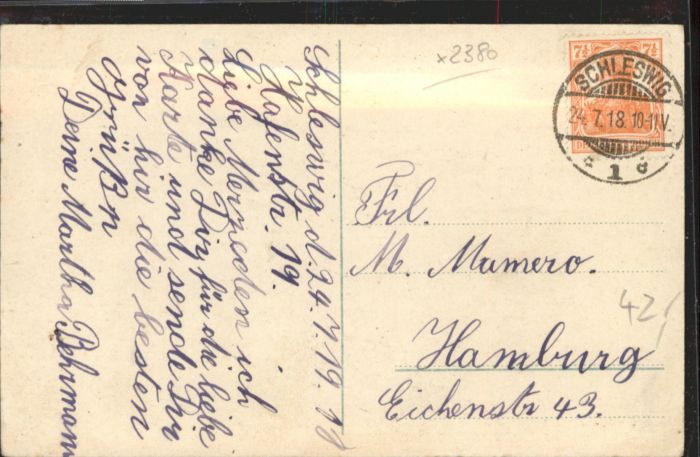 Schleswig d. 24.7.19.18
Hafenstr. 19.
Liebe ich
danke Dir für die liebe
Karte und sende Dir
von hir die besten
Grüßn
Deine Martha Behrmann
x2380
7½ 7½
SCHLESWIG
24.7.18. 10-11V.
* 1 d
Frl.
M. Mumero.
Hamburg
Eichenstr 43.
42